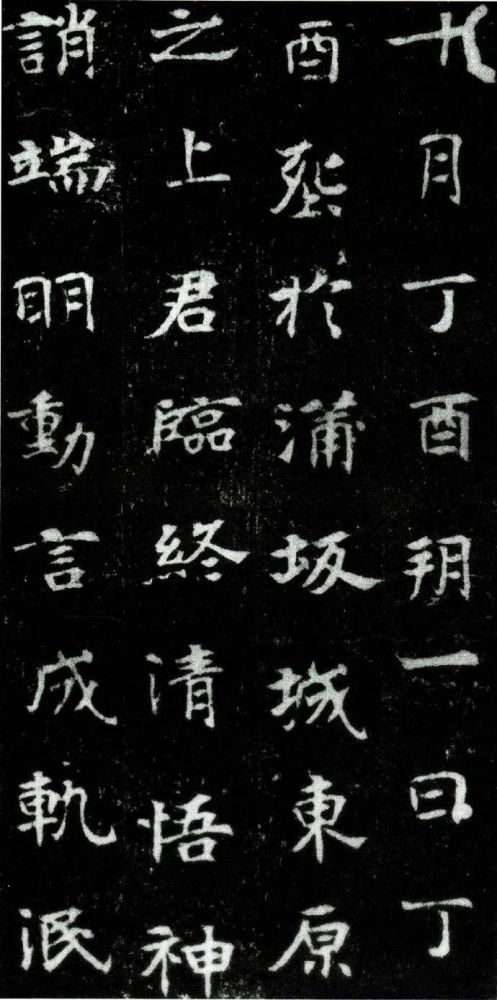 十月丁酉朔一日丁
酉葬於蒲坂城東原
之上君臨終清悟神
誚端眀動言成軌泯